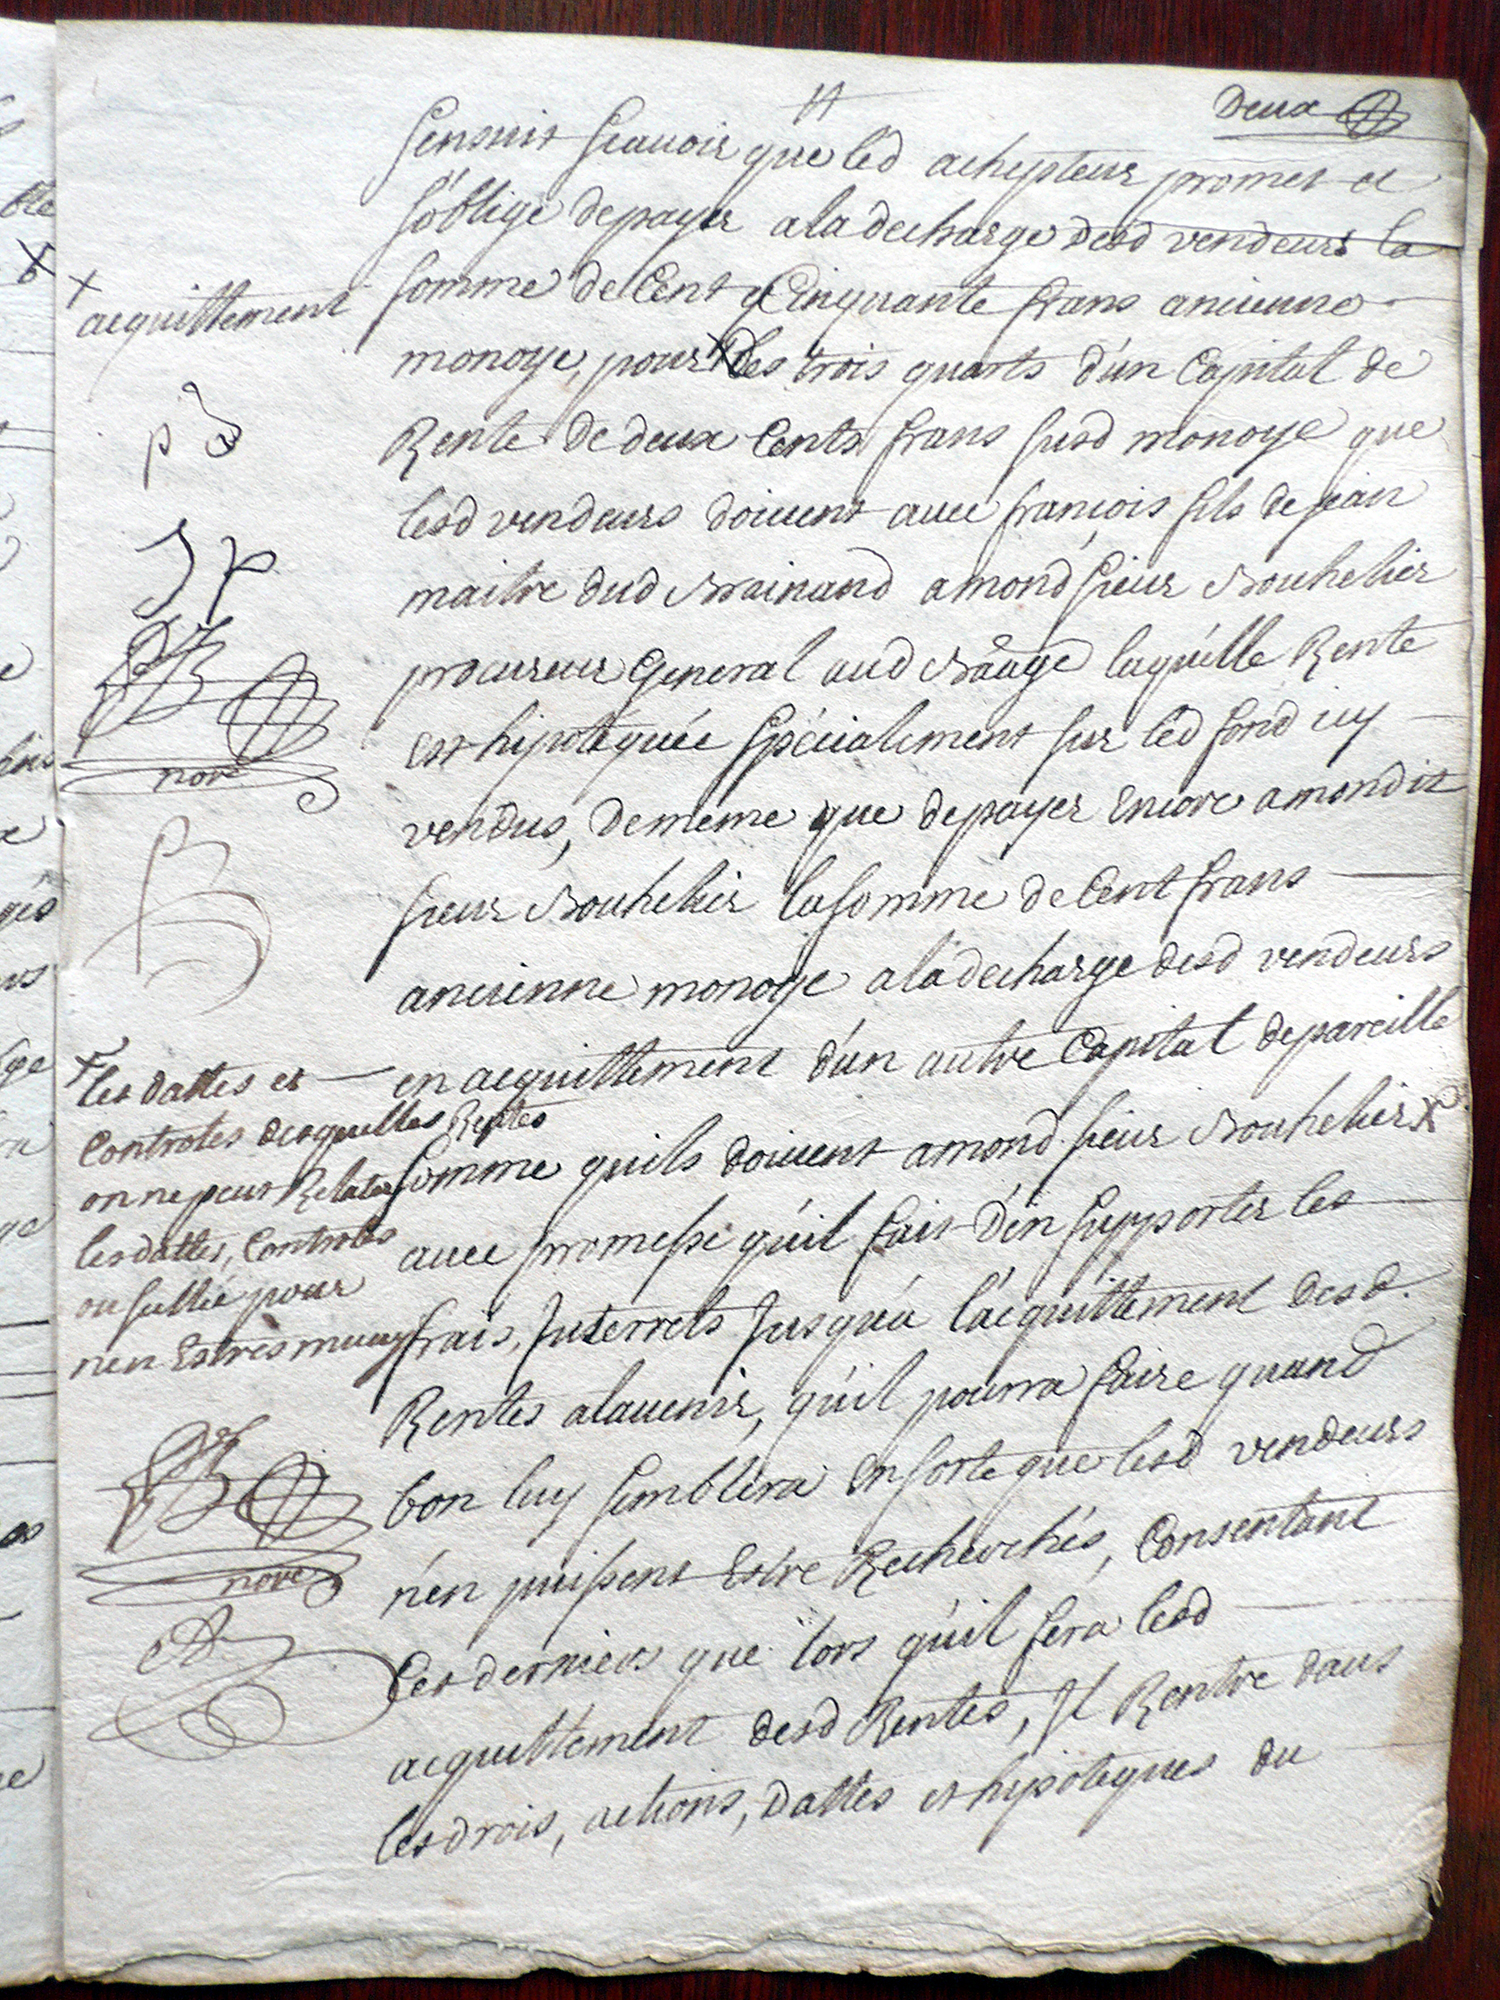 Deux
s'ensuit scauoir que led achepteur promet et
s'oblige de payer a la decharge desd vendeurs la
somme de Cent Cinquante frans ancienne
monoye, pour X les trois quarts d'un Capital de
Rente de deux Cents frans susd monoye que
lesd vendeurs doiuent auec francois fils de jean
maitre dud Mainand a mond sieur Bouhelier
procureur General aud laquelle Rente
est hipotéquée spécialement sur led fond icy
vendus, de méme que de payer Encore a mondit
sieur Bouhelier la somme de Cent frans
ancienne monoye a la decharge desd vendeurs
en acquittement d'un autre Capital de pareille
somme qu'ils doiuent a mond sieur Bouhelier X
auec promesse qu'il fait d'en supporter les
frais, Interrets Jusqu'a l'acquittement desd.
Rentes a lauenir, qu'il pourra faire quand
bon luy semblera En sorte que lesd vendeurs
n'en puissent Estre Recherchés, Consentant
Ces derniers que lors qu'il fera lesd
acquittement desd Rentes, Il Rentre dans
les drois, actions, dattes et hipoteques du
X
acquittement
nore
X
les dattes et
Controles desquelles Rentes
on ne peut Relater
les dattes, Controles
ou
n'en Estres
nore